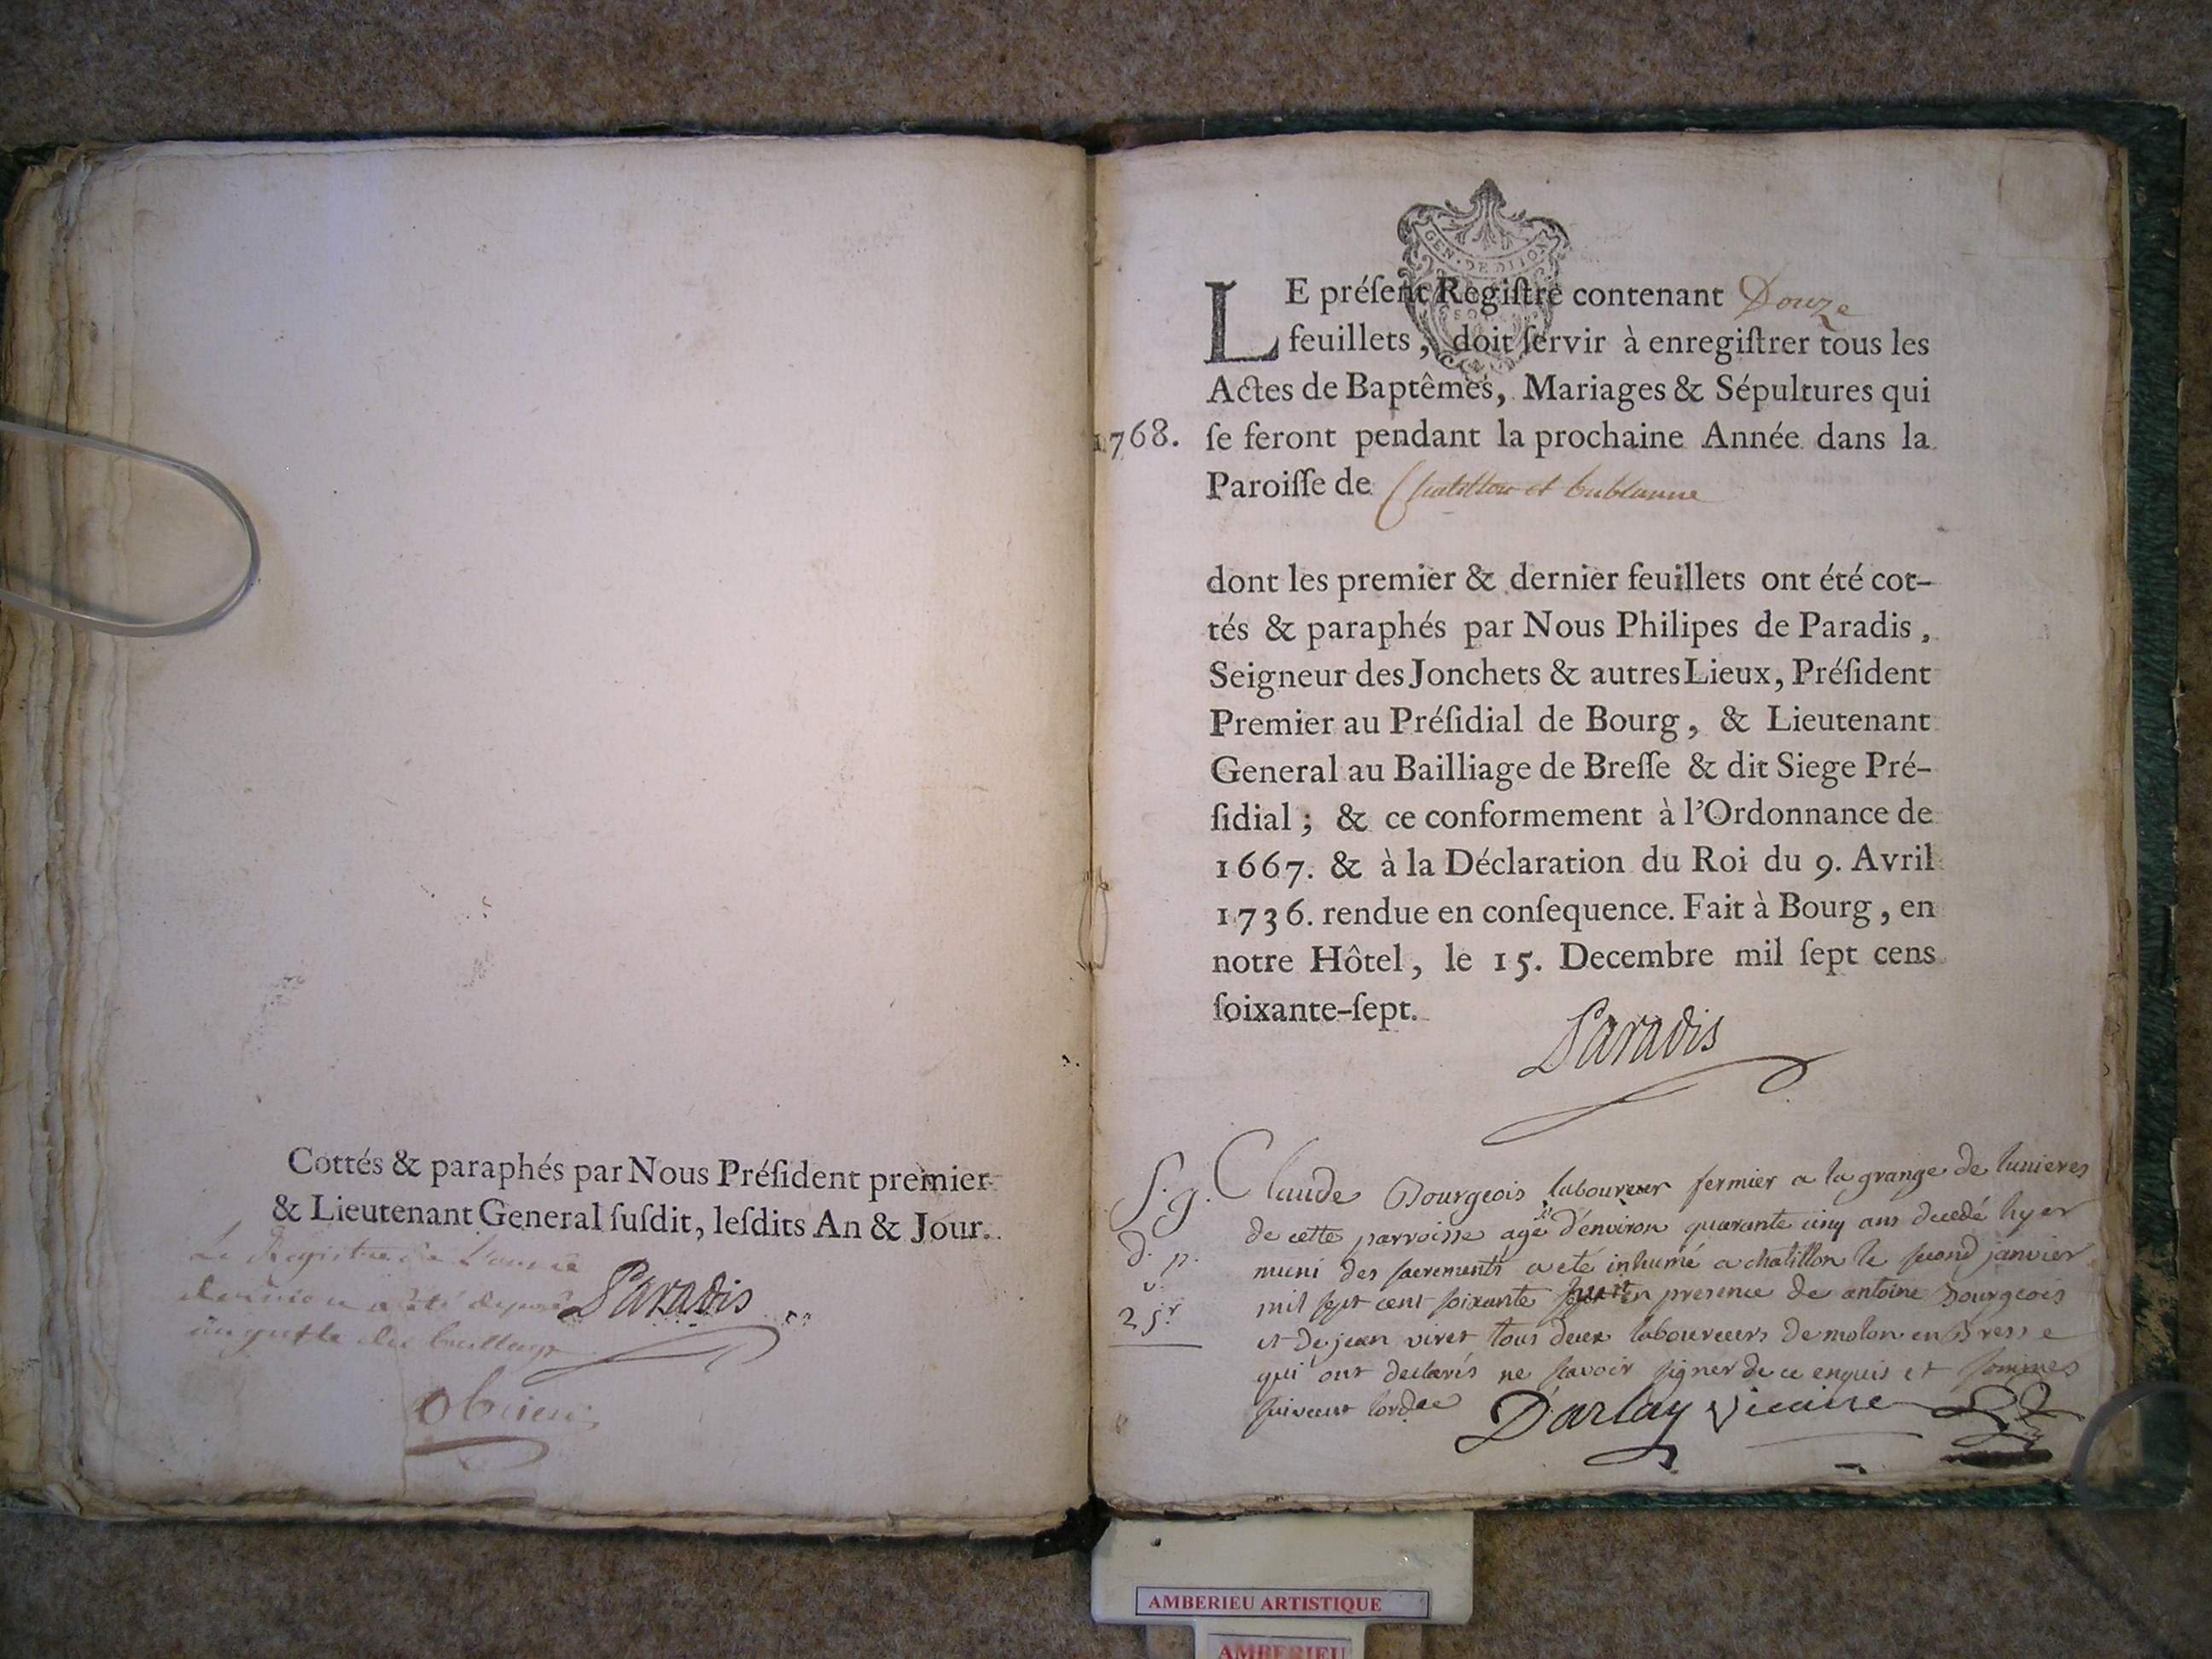 Cottés & paraphés par Nous Préſident premier
& Lieutenant General ſuſdit, leſdits An & Jour.
Le Registre de l'année
derniere a été deposé
au greffe du bailliage
Paradis
GEN. DE DIJON
LE préſent Regiſtre contenant Douze
feuillets, doit ſervir à enregiſtrer tous les
Actes de Baptêmes, Mariages & Sépultures qui
1768. ſe feront pendant la prochaine Année dans la
Paroiſſe de Chatillon et bublanne
dont les premier & dernier feuillets ont été cot-
tés & paraphés par Nous Philipes de Paradis,
Seigneur des Jonchets & autres Lieux, Préſident
Premier au Préſidial de Bourg, & Lieutenant
General au Bailliage de Breſſe & dit Siege Pré-
ſidial; & ce conformement à l'Ordonnance de
1667. & à la Déclaration du Roi du 9. Avril
1736. rendue en conſequence. Fait à Bourg, en
notre Hôtel, le 15. Decembre mil ſept cens
ſoixante-ſept.
Paradis
S. g. Claude Bourgeois laboureur fermier a la grange de lunieres
d. p. de cette parroisse agé d'environ quarante cinq ans decedé hyer
v. muni des sacrements a eté inhumé a chatillon le second janvier
25 mil sept cent soixante huit en presence de antoine Bourgeois
et de jean viret tous deux laboureurs de molon en Bresse
qui ont declarés ne scavoir signer de ce enquis et sommes
suivant lordre Darlay vicaire
AMBERIEU ARTISTIQUE
AMBERIEU